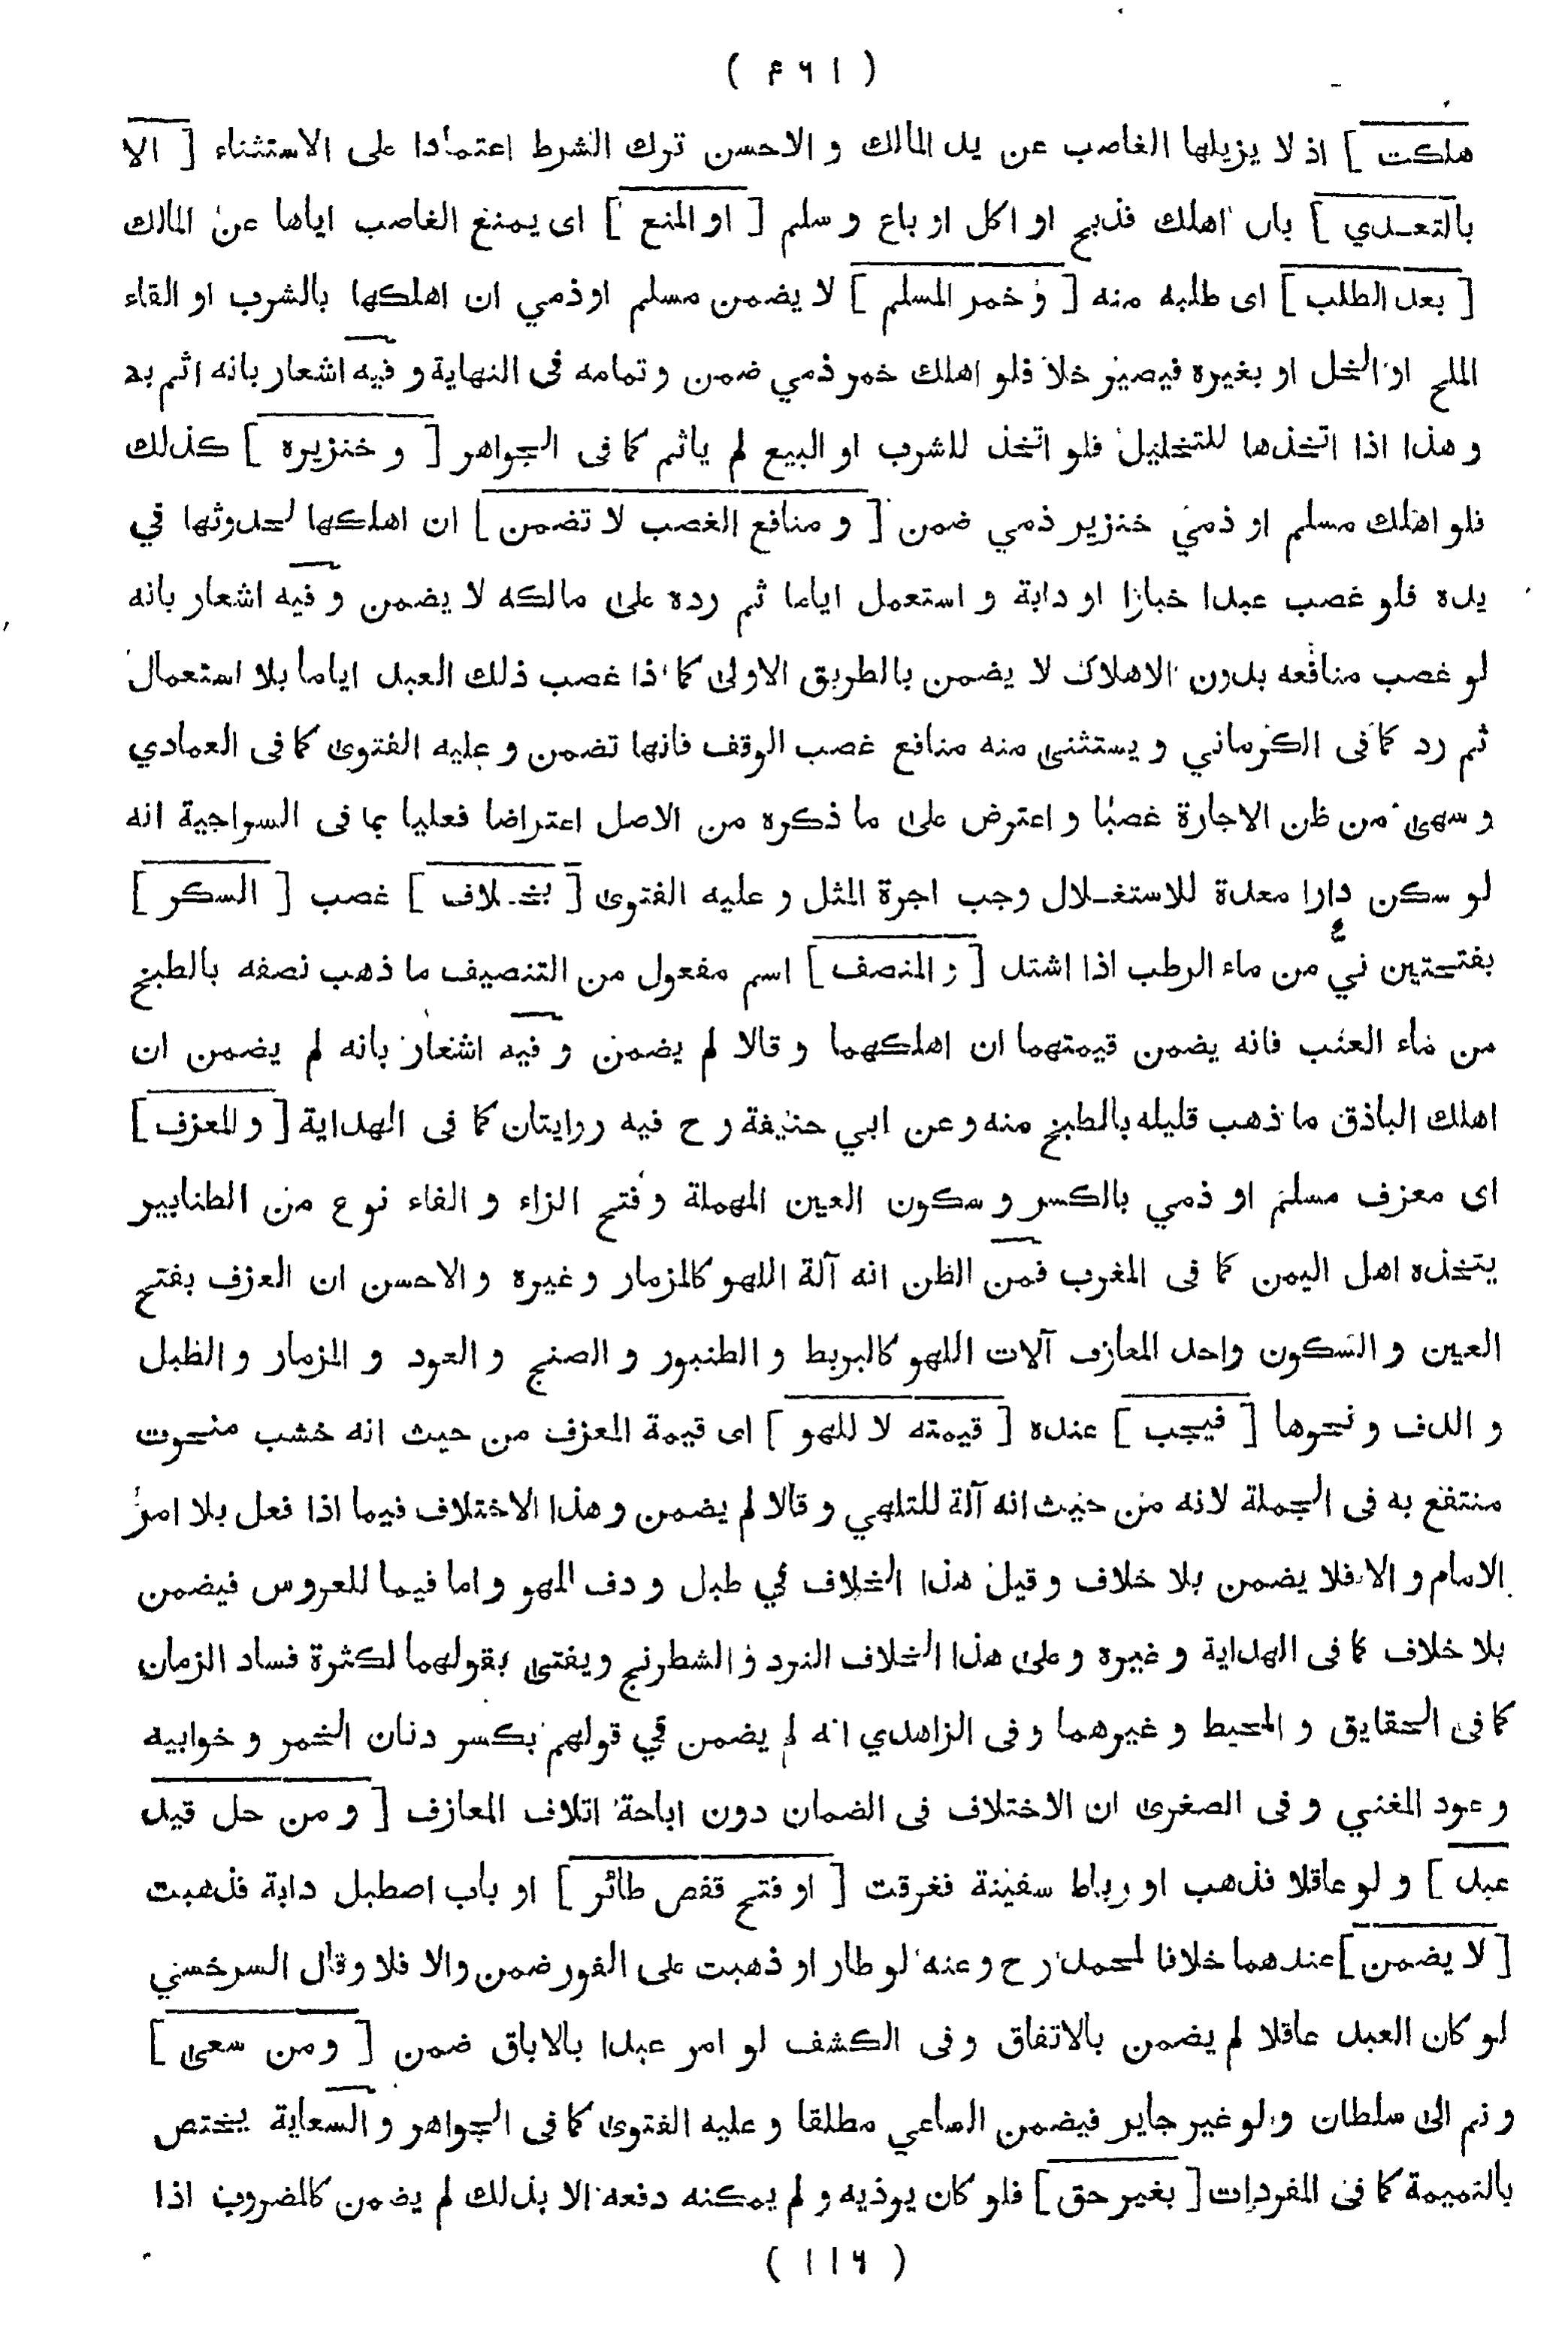 ( ۴۶۱ )
هلكت ] اذ لا يزيلها الغاصب عن يد المالك و الاحسن ترك الشرط اعتمادا على الاستثناء [ الا
بالتعدي ] بان اهلك فذبح او اكل او باع و سلم [ او المنع ] اى يمنع الغاصب اياها عن المالك
[ بعد الطلب ] اى طلبه منه [ و خمر المسلم ] لا يضمن مسلم او ذمي ان اهلكها بالشرب او القاء
الملح او الخل او بغيره فيصير خلا فلو اهلك خمر ذمي ضمن و تمامه فى النهاية و فيه اشعار بانه اثم به
و هذا اذا اتخذها للتخليل فلو اتخذ للشرب او البيع لم ياثم كما فى الجواهر [ و خنزيره ] كذلك
فلو اهلك مسلم او ذمي خنزير ذمي ضمن [ و منافع الغصب لا تضمن ] ان اهلكها لحدوثها في
يده فلو غصب عبدا خبازا او دابة و استعمل اياما ثم رده على مالكه لا يضمن و فيه اشعار بانه
لو غصب منافعه بدون الاهلاك لا يضمن بالطريق الاولى كما اذا غصب ذلك العبد اياما بلا استعمال
ثم رد كما فى الكرماني و يستثنى منه منافع غصب الوقف فانها تضمن و عليه الفتوى كما فى العمادي
و سهى من ظن الاجارة غصبا و اعترض على ما ذكره من الاصل اعتراضا فعليا بما فى السراجية انه
لو سكن دارا معدة للاستغلال وجب اجرة المثل و عليه الفتوى [ بخلاف ] غصب [ السكر ]
بفتحتين نيء من ماء الرطب اذا اشتد [ و المنصف ] اسم مفعول من التنصيف ما ذهب نصفه بالطبخ
من ماء العنب فانه يضمن قيمتهما ان اهلكهما و قالا لم يضمن و فيه اشعار بانه لم يضمن ان
اهلك الباذق ما ذهب قليله بالطبخ منه و عن ابي حنيفة ر ح فيه روايتان كما فى الهداية [ و المعزف ]
اى معزف مسلم او ذمي بالكسر و سكون العين المهملة و فتح الزاء و الفاء نوع من الطنابير
يتخذه اهل اليمن كما فى المغرب فمن الظن انه آلة اللهو كالمزمار و غيره و الاحسن ان العزف بفتح
العين و السكون واحد المعازف آلات اللهو كالبربط و الطنبور و الصنج و العود و المزمار و الطبل
و الدف و نحوها [ فيجب ] عنده [ قيمته لا للهو ] اى قيمة المعزف من حيث انه خشب منحوت
منتفع به فى الجملة لانه من حيث انه آلة للتلهي و قالا لم يضمن و هذا الاختلاف فيما اذا فعل بلا امر
الامام و الا فلا يضمن بلا خلاف و قيل هذا الخلاف في طبل و دف لهو و اما فيما للعروس فيضمن
بلا خلاف كما فى الهداية و غيره و على هذا الخلاف النرد و الشطرنج و يفتى بقولهما لكثرة فساد الزمان
كما فى الحقايق و المحيط و غيرهما و فى الزاهدي انه لم يضمن في قولهم بكسر دنان الخمر و خوابيه
و عود المغني و فى الصغرى ان الاختلاف فى الضمان دون اباحة اتلاف المعازف [ و من حل قيد
عبد ] و لو عاقلا فذهب او رباط سفينة فغرقت [ او فتح قفص طائر ] او باب اصطبل دابة فذهبت
[ لا يضمن ] عندهما خلافا لمحمد ر ح و عنه لو طار او ذهبت على الفور ضمن والا فلا وقال السرخسي
لو كان العبد عاقلا لم يضمن بالاتفاق و فى الكشف لو امر عبدا بالاباق ضمن [ و من سعى ]
و نم الى سلطان و لو غير جاير فيضمن الساعي مطلقا و عليه الفتوى كما فى الجواهر و السعاية يختص
بالنميمة كما فى المفردات [ بغير حق ] فلو كان يوذيه و لم يمكنه دفعه الا بذلك لم يضمن كالمضروب اذا
( ۱۱۶ )